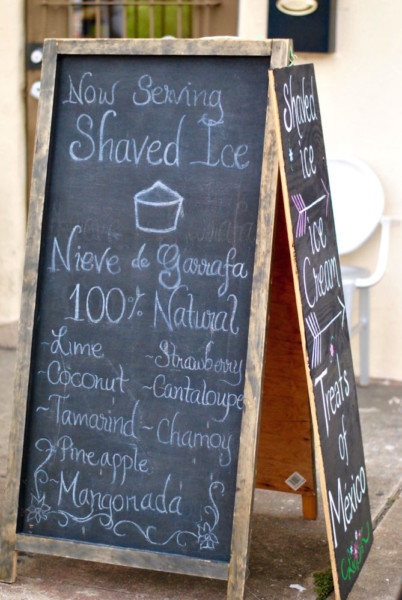 Now Serving
Shaved Ice
Nieve de Garrafa
100% Natural
~Lime
~Coconut
~Tamarind
~Pineapple
~Mangonada
~Strawberry
~Cantaloupe
~Chamoy
Shaved
ice
ice
Cream
Treats
of
Mexico